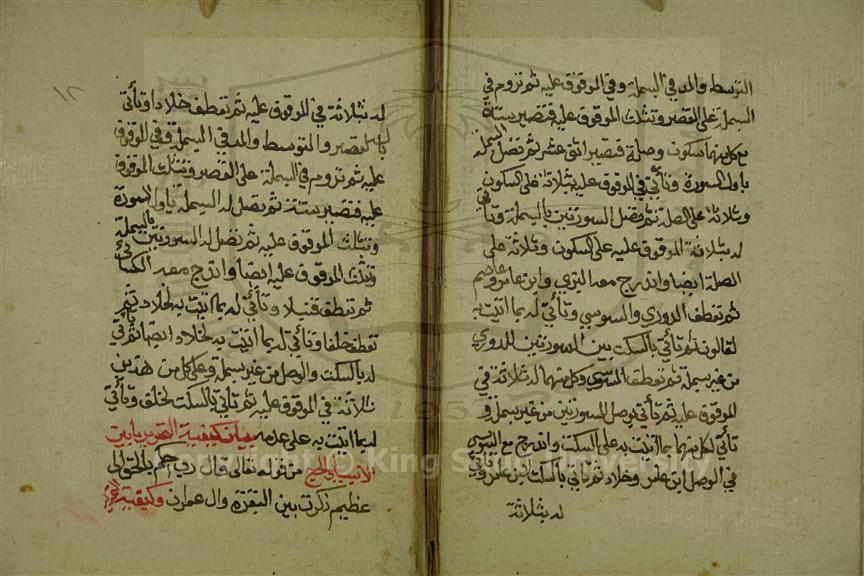 التوسط والمد في البسملة وفي الموقوف عليه ثم تروم في
البسملة على القصر وتثلث الموقوف عليه فتصير ستة
مع كل منهما سكون وصلة فتصير اثنى عشر ثم تصل البسملة
باول السورة وتأتي في الموقوف عليه بثلاثة على السكون
وثلاثة على الصلة ثم تصل السورتين بالبسملة وتأتي
له بثلاثة الموقوف عليه على السكون وثلاثة على
الصلة ايضا واندرج معه البزي وابن عامر وعاصم
ثم تعطف الدوري والسوسي وتأتي له بما اتيت به
لقالون ثم تأتي بالسكت بين السورتين للدوري
من غير بسملة ثم تعطف السوسي وكل منهما له ثلاثة في
الموقوف عليه ثم تأتي بوصل السورتين من غير بسملة و
تأتي لكل منهما بما اتيت به على السكت واندرج مع السوسي
في الوصل ابن عامر وخلاد ثم تأتي بالسكت لابن عامر وتأتي
له بثلاثة
١٢
له بثلاثة في الموقوف عليه ثم تعطف خلادا وتأتي
القصر والتوسط والمد في البسملة وفي الموقوف
عليه ثم تروم في البسملة على القصر وتثلث الموقوف
عليه فتصير ستة ثم تصل له البسملة باول السورة
وتثلث الموقوف عليه ثم تصل له السورتين بالبسملة
وتثلث الموقوف عليه ايضا واندرج معه الكسائي
ثم تعطف قنبلا وتأتي له بما اتيت به لخلاد ثم
تعطف خلفا وتأتي له بما اتيت به لخلاد ايضا ثم تأتي
له بالسكت والوصل من غير بسملة وعلى كل من هذين
ثلاثة في الموقوف عليه ثم تأتي بالسكت لخلف وتأتي
له بما اتيت به على عدمه بيان كيفية التحرير بين
الانبياء والحج من قوله تعالى قال رب احكم بالحق الى
عظيم ذكرت بين البقرة وال عمران وكيفية
Copyright © King Saud University
1957